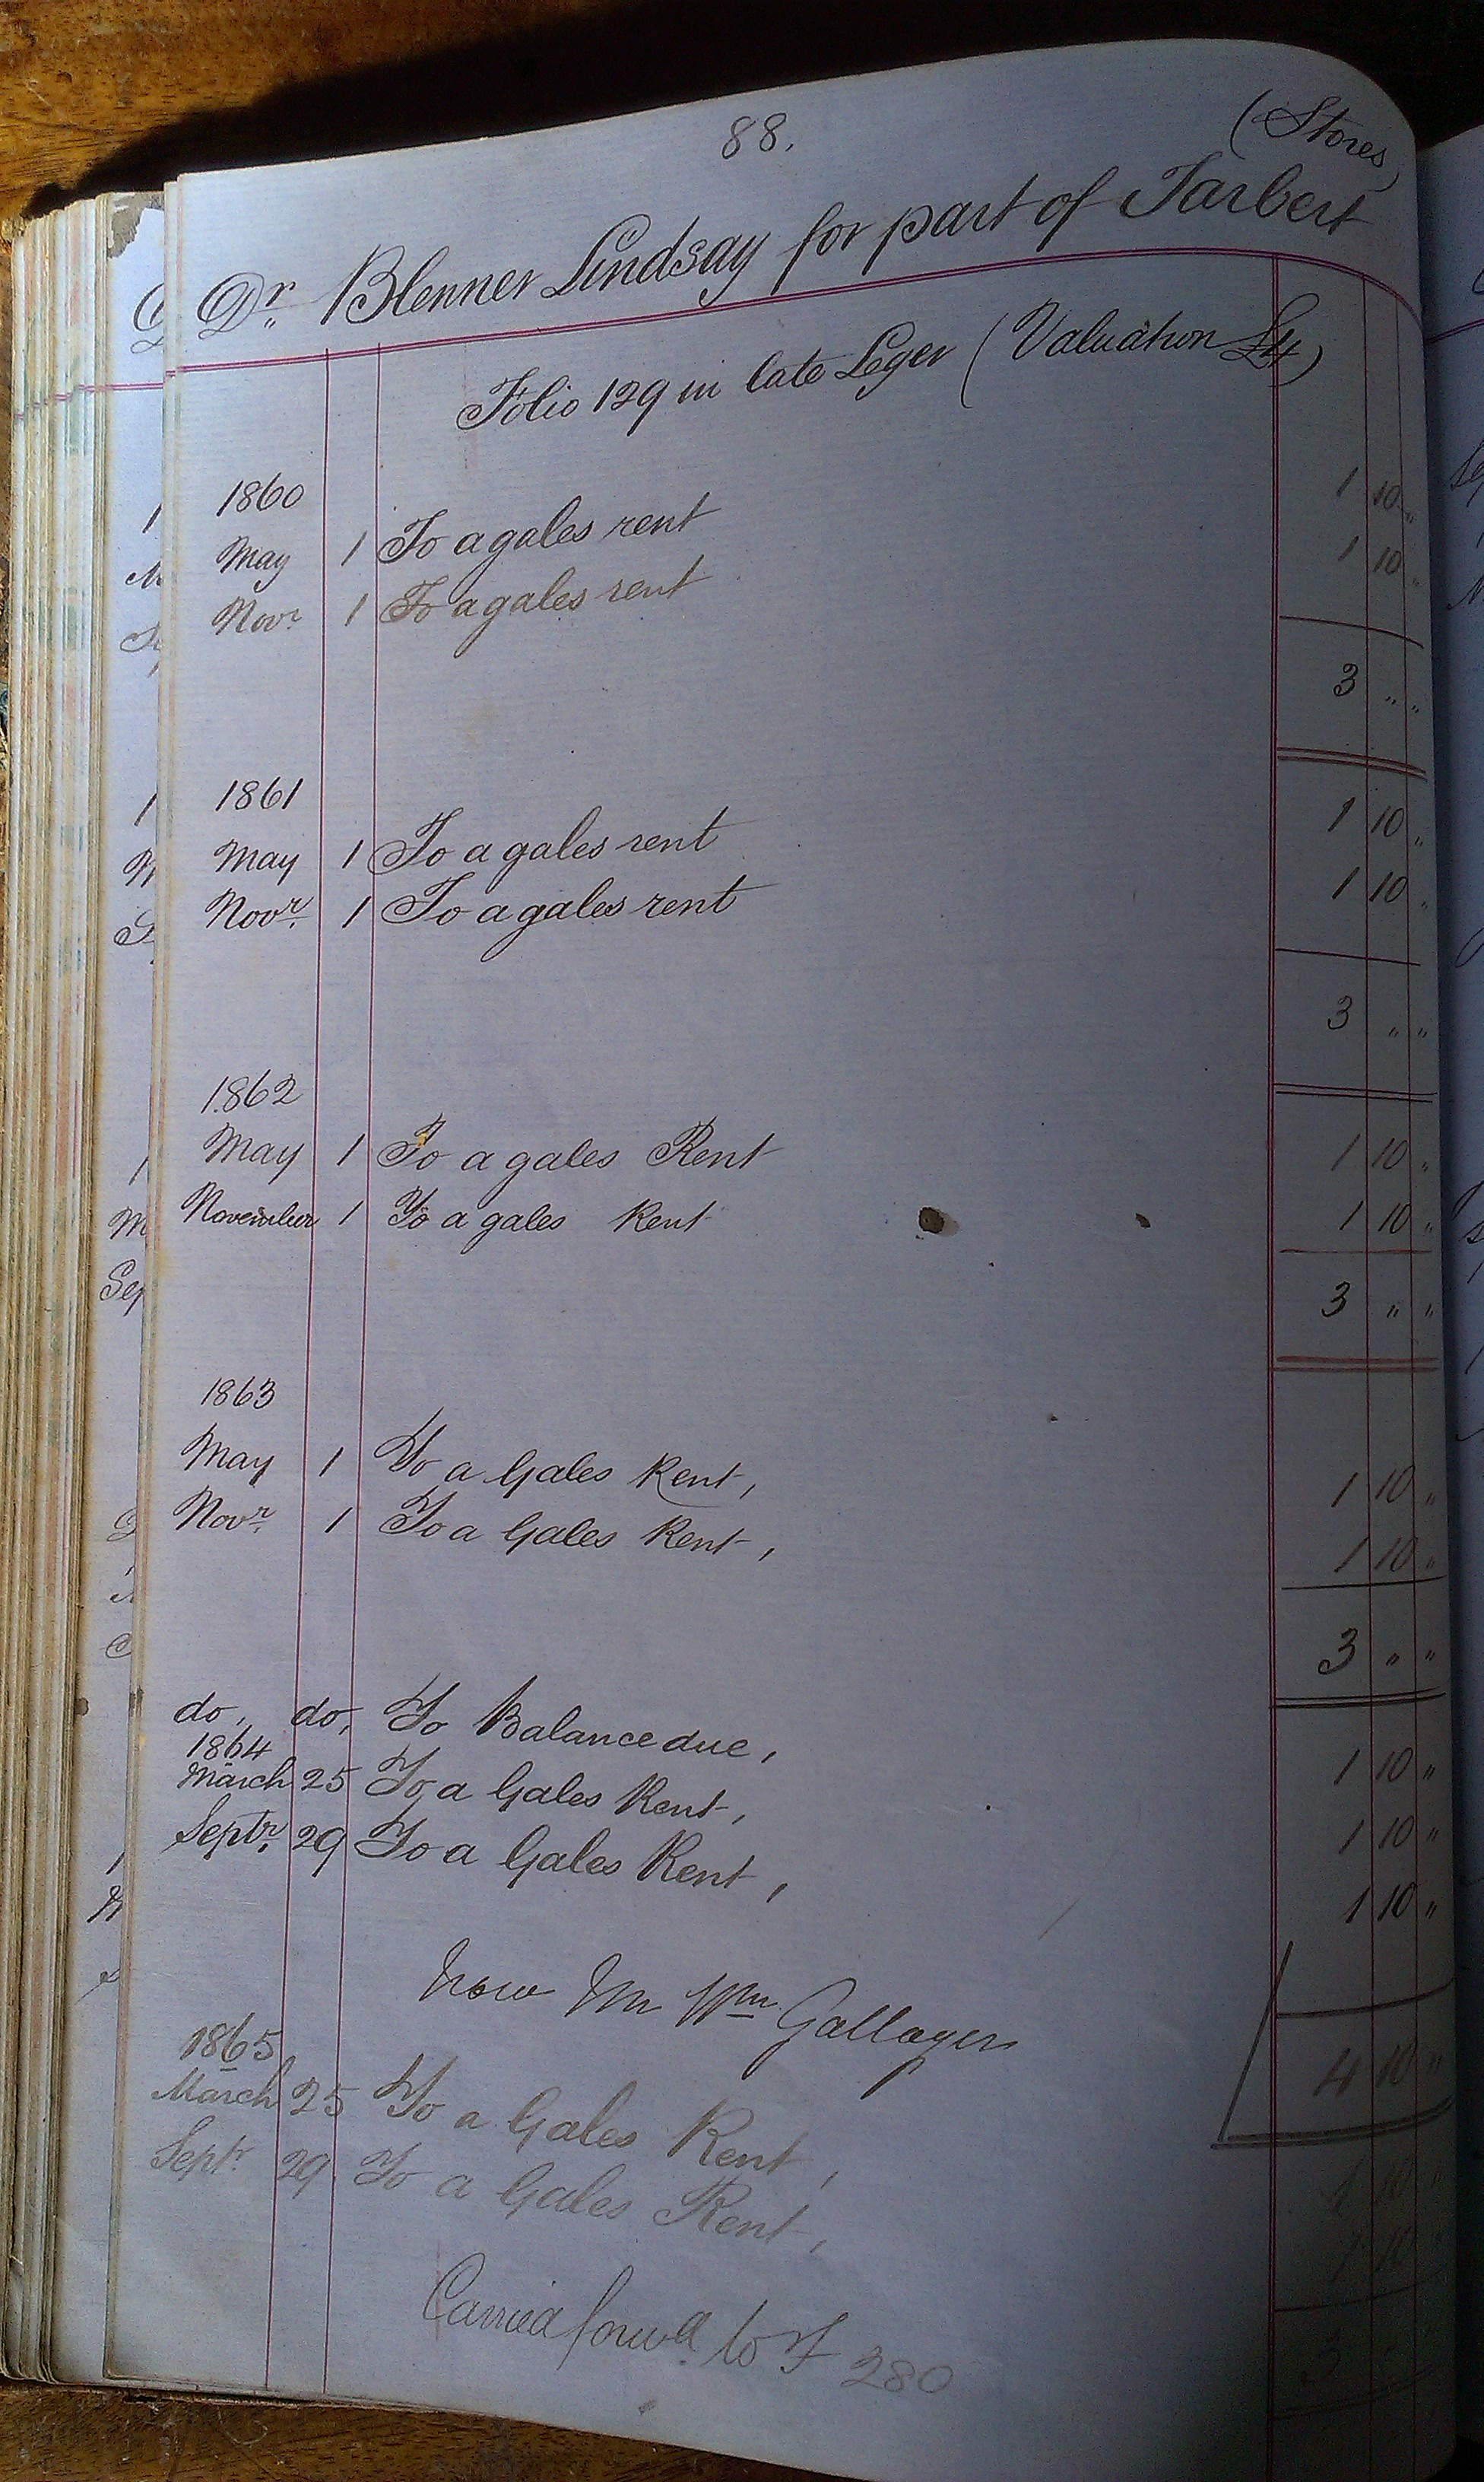 88.
(Stores)
Dr. Blenner Lindsay for part of Tarbert
Folio 129 in late Leger (Valuation £4)
1860
May 1 To a gales rent 1 10 "
Novr 1 To a gales rent 1 10 "
3 " "
1861
May 1 To a gales rent 1 10 "
Novr. 1 To a gales rent 1 10 "
3 " "
1862
May 1 To a gales Rent 1 10 "
November 1 To a gales Rent 1 10 "
3 " "
1863
May 1 To a Gales Rent, 1 10 "
Novr. 1 To a Gales Rent, 1 10 "
3 " "
do, do, To Balance due, 1 10 "
1864
March 25 To a Gales Rent, 1 10 "
Septr. 29 To a Gales Rent, 1 10 "
Now Mr Wm Gallagher
4 10 "
1865
March 25 To a Gales Rent, 1 10 "
Septr. 29 To a Gales Rent, 1 10 "
3
Carried forwd. to F 280